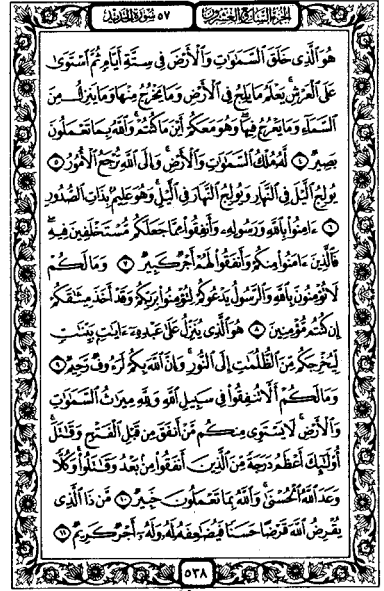 الجزء السابع والعشرون ٥٧ سورة الحديد
هُوَ الَّذِي خَلَقَ السَّمَوَاتِ وَالْأَرْضَ فِي سِتَّةِ أَيَّامٍ ثُمَّ اسْتَوَىٰ
عَلَى الْعَرْشِ يَعْلَمُ مَا يَلِجُ فِي الْأَرْضِ وَمَا يَخْرُجُ مِنْهَا وَمَا يَنزِلُ مِنَ
السَّمَاءِ وَمَا يَعْرُجُ فِيهَا وَهُوَ مَعَكُمْ أَيْنَ مَا كُنتُمْ وَاللَّهُ بِمَا تَعْمَلُونَ
بَصِيرٌ ٤ لَّهُ مُلْكُ السَّمَوَاتِ وَالْأَرْضِ وَإِلَى اللَّهِ تُرْجَعُ الْأُمُورُ ٥
يُولِجُ الَّيْلَ فِي النَّهَارِ وَيُولِجُ النَّهَارَ فِي الَّيْلِ وَهُوَ عَلِيمٌ بِذَاتِ الصُّدُورِ
٦ ءَامِنُوا بِاللَّهِ وَرَسُولِهِ وَأَنفِقُوا مِمَّا جَعَلَكُم مُّسْتَخْلَفِينَ فِيهِ
فَالَّذِينَ ءَامَنُوا مِنكُمْ وَأَنفَقُوا لَهُمْ أَجْرٌ كَبِيرٌ ٧ وَمَا لَكُمْ
لَا تُؤْمِنُونَ بِاللَّهِ وَالرَّسُولُ يَدْعُوكُمْ لِتُؤْمِنُوا بِرَبِّكُمْ وَقَدْ أَخَذَ مِيثَٰقَكُمْ
إِن كُنتُم مُّؤْمِنِينَ ٨ هُوَ الَّذِي يُنَزِّلُ عَلَىٰ عَبْدِهِ ءَايَٰتٍ بَيِّنَٰتٍ
لِّيُخْرِجَكُم مِّنَ الظُّلُمَٰتِ إِلَى النُّورِ وَإِنَّ اللَّهَ بِكُمْ لَرَءُوفٌ رَّحِيمٌ ٩
وَمَا لَكُمْ أَلَّا تُنفِقُوا فِي سَبِيلِ اللَّهِ وَلِلَّهِ مِيرَٰثُ السَّمَوَاتِ
وَالْأَرْضِ لَا يَسْتَوِي مِنكُم مَّنْ أَنفَقَ مِن قَبْلِ الْفَتْحِ وَقَٰتَلَ
أُولَٰئِكَ أَعْظَمُ دَرَجَةً مِّنَ الَّذِينَ أَنفَقُوا مِن بَعْدُ وَقَٰتَلُوا وَكُلًّا
وَعَدَ اللَّهُ الْحُسْنَىٰ وَاللَّهُ بِمَا تَعْمَلُونَ خَبِيرٌ ١٠ مَّن ذَا الَّذِي
يُقْرِضُ اللَّهَ قَرْضًا حَسَنًا فَيُضَٰعِفَهُ لَهُ وَلَهُ أَجْرٌ كَرِيمٌ ١١
٥٣٨